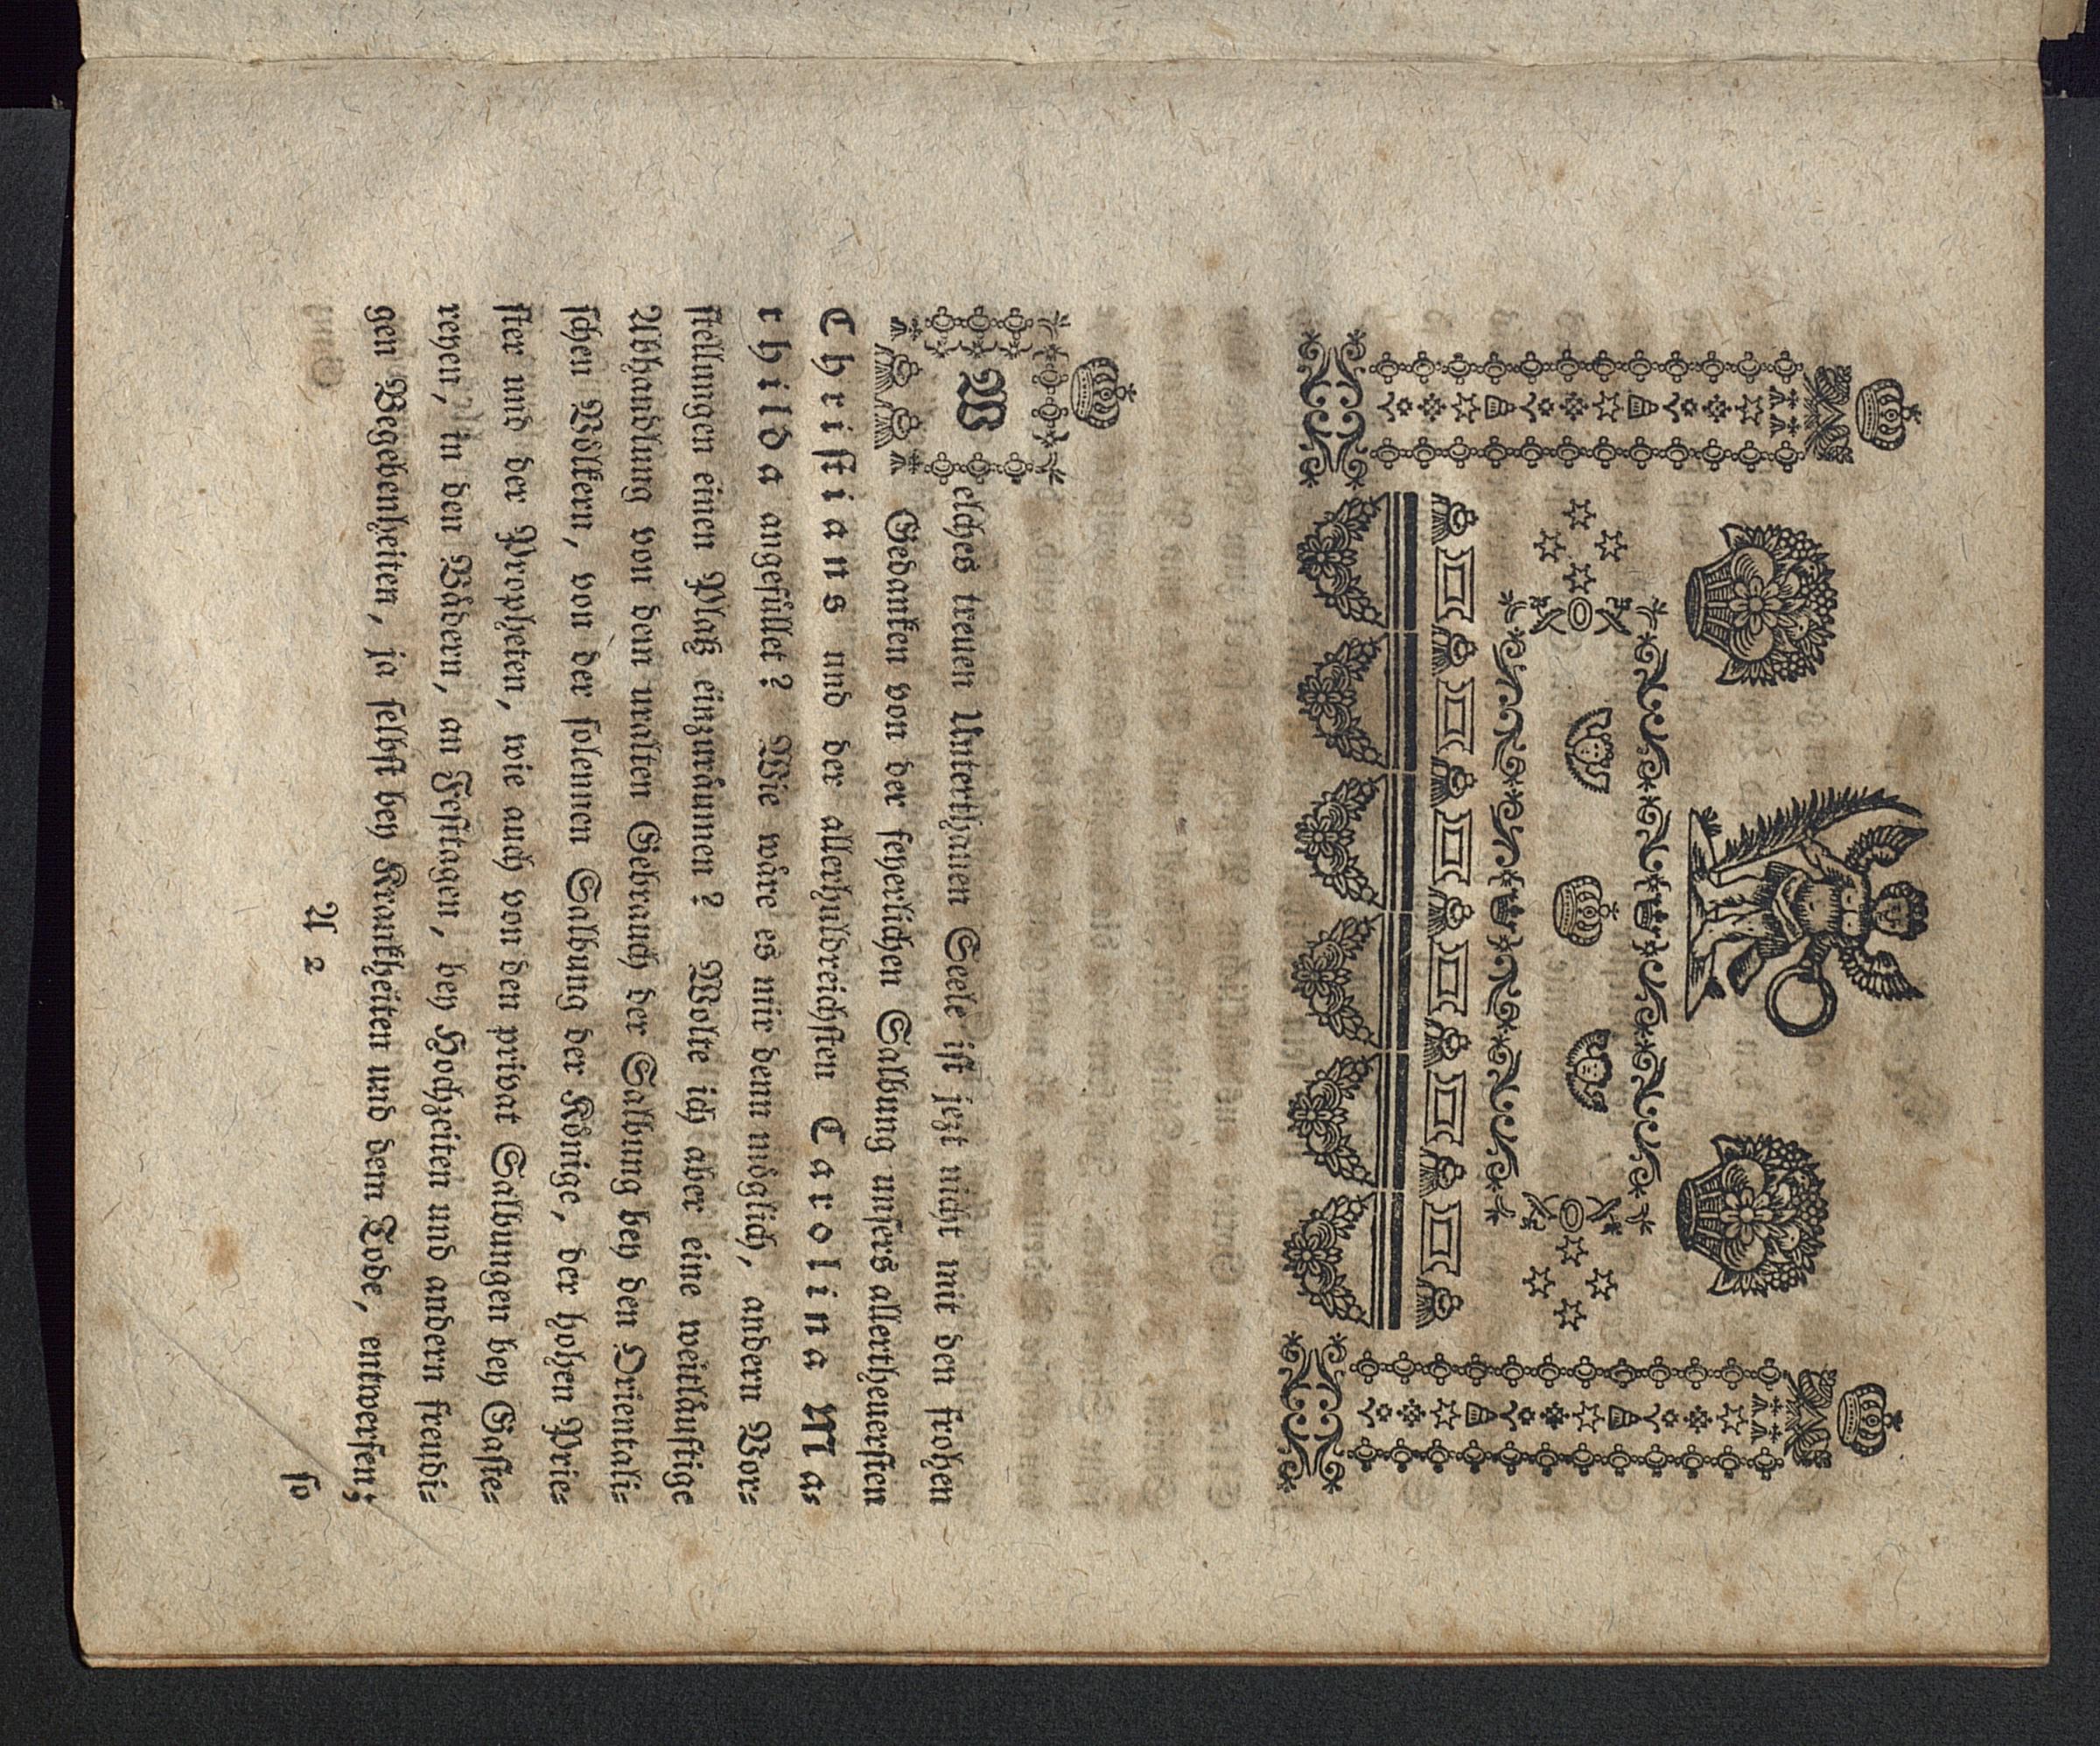 Welches treuen Unterthanen Seele ist jezt nicht mit den frohen
Gedanken von der feyerlichen Salbung unsers allertheuersten
Christians und der allerhuldreichsten Carolina Ma=
thilda angefüllet? Wie wäre es mir denn möglich, andern Vor=
stellungen einen Platz einzuräumen? Wolte ich aber eine weitläuftige
Abhandlung von dem uralten Gebrauch der Salbung bey den Orientali=
schen Völkern, von der solennen Salbung der Könige, der hohen Prie=
ster und der Propheten, wie auch von den privat Salbungen bey Gaste=
reyen, in den Bädern, an Festtagen, bey Hochzeiten und andern freudi=
gen Begebenheiten, ja selbst bey Krankheiten und dem Tode, entwerfen;
A 2
so